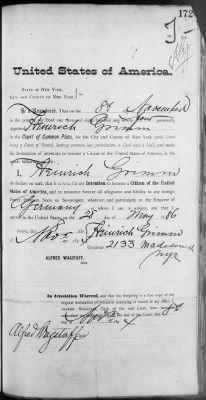 172
United States of America.
STATE OF NEW YORK,
CITY AND COUNTY OF NEW YORK,
Be it Remembered, That on the 8th of November
in the year of our Lord one thousand eight hundred and
Heinrich Grimm appeared
in the Court of Common Pleas, for the City and County of New York (said Court
being a Court of Record, having common law jurisdiction, a Clerk and a Seal), and made
his declaration of intention to become a Citizen of the United States of America, in the
I, Heinrich Grimm
declare on oath, that it is bona fide my Intention to become a Citizen of the United
States of America, and to renounce forever all allegiance and fidelity to any foreign
Prince, Potentate, State or Sovereignty whatever, and particularly to the Emperor of
Germany of whom I am a subject, and that I
arrived in the United States, on the 28 day of May 86
Sworn, this 8
Nov
Heinrich Grimm
Residence 2133 Madison
NYC
ALFRED WAGSTAFF,
Clerk.
In Attestation Whereof, and that the foregoing is a true copy of the
original declaration of intention remaining of record in my office, I,
ALFRED WAGSTAFF, Clerk of the said Court, have hereunto
Alfred Wagstaff